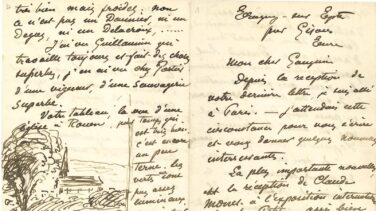 très bien mais froides; non
ce n'est pas un Daumier, ni un
Degas, ni un Delacroix, .....
J'ai vu Guillaumin qui
travaille toujours et fait des choses
superbes, j'en ai vu chez Portier
d'une vigueur, d'une Sauvagerie
superbe.
Votre tableau, la vue d'une
église à Rouen, par temps gris
est très bon.
c'est encore
un peu
terne. les
verts sont
pas assez
lumineux.
Eragny-sur Epte
par Gisors
Eure
Mon cher Gauguin
Depuis la réception de
votre dernière lettre, je suis allé
à Paris. — j'attendais cette
circonstance pour vous écrire
et vous donner quelques nouvelles
intéressantes.
La plus importante nouvelle
est la réception de Claude
Monet à l'exposition
Petit aussi bien